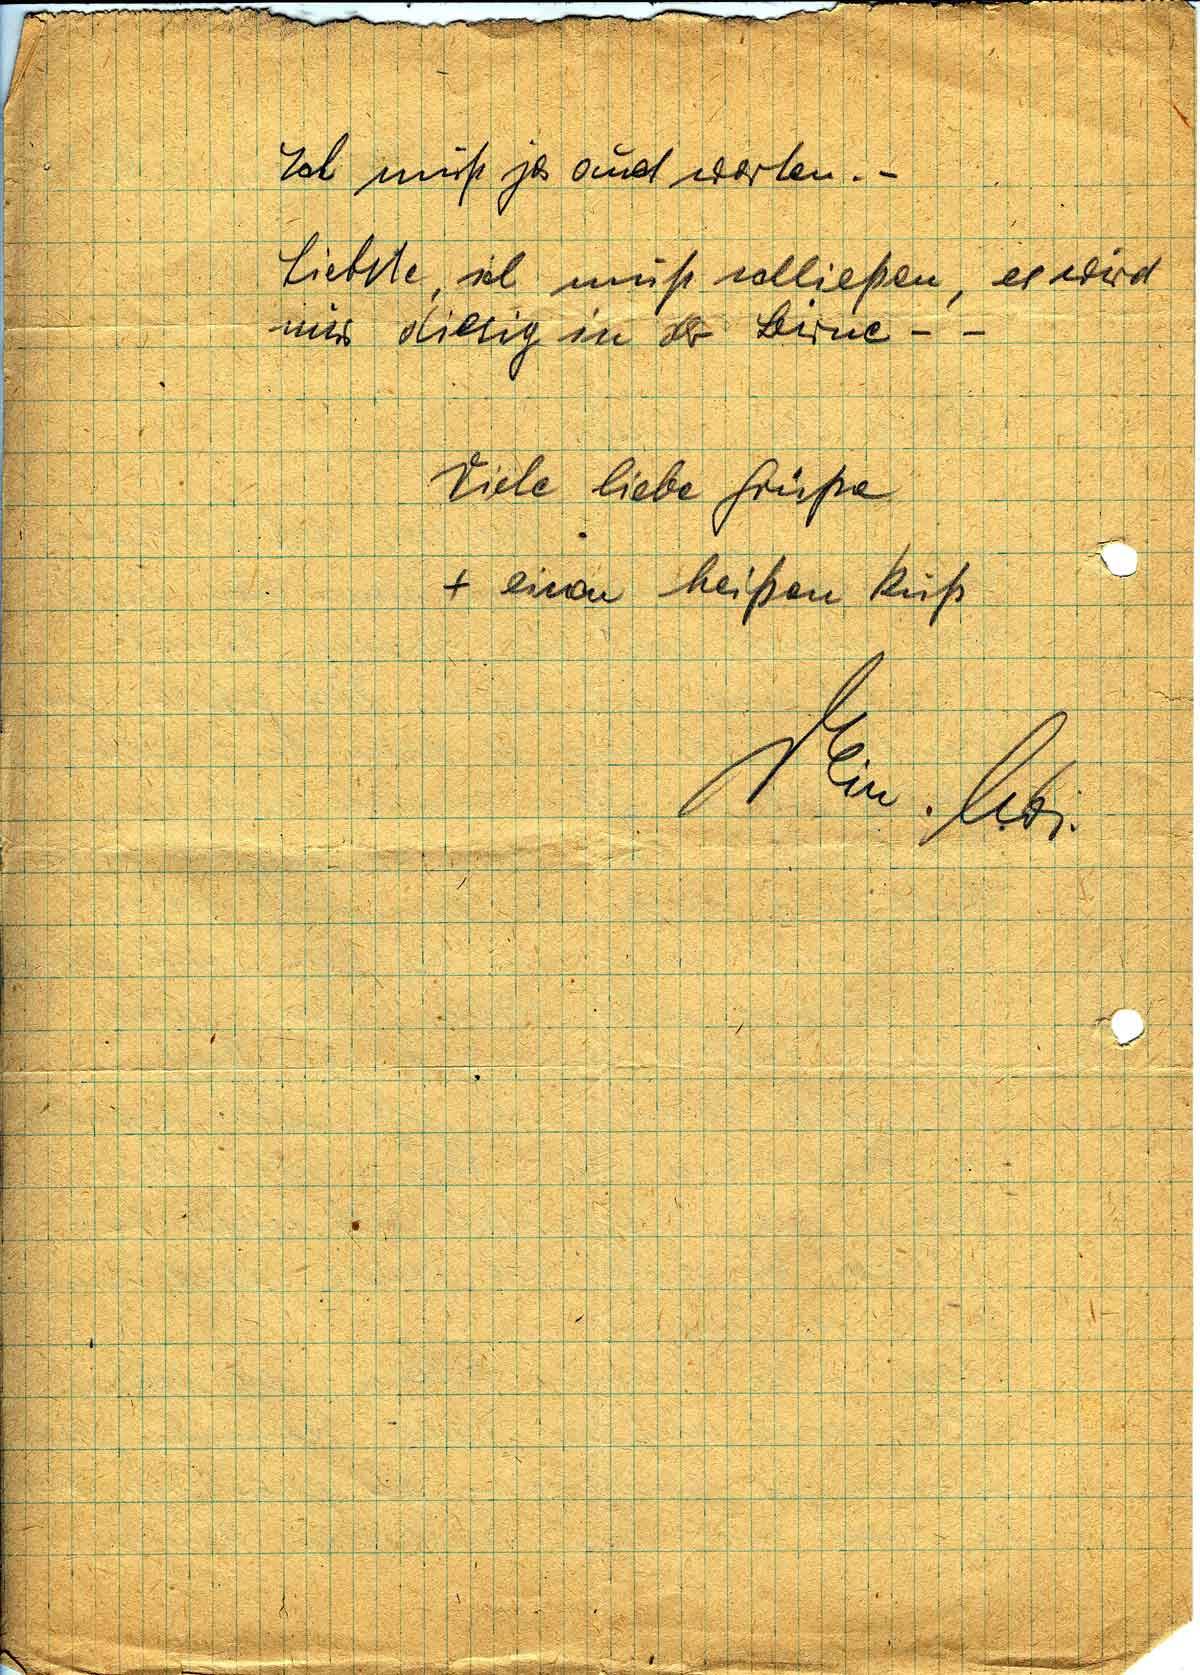 Ich muß ja auch warten. –
Liebste, ich muß schließen, es wird
mir diesig in der Birne – –
Viele liebe Grüße
+ einen heißen Kuß
Dein